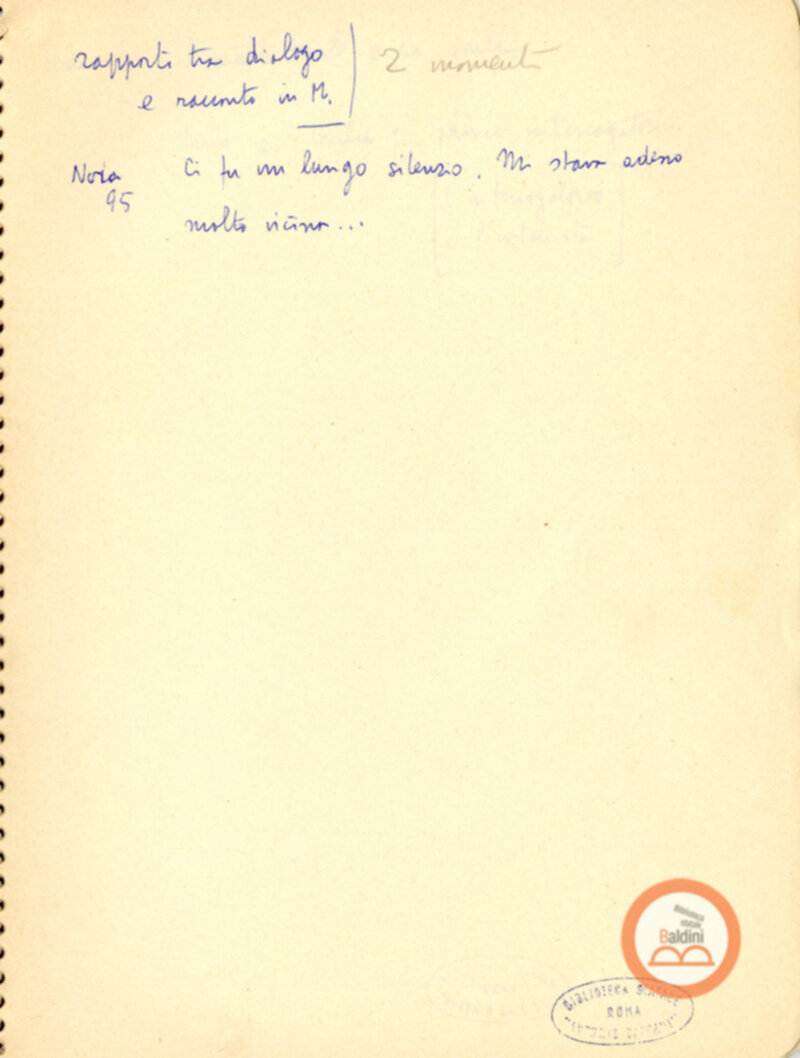 rapporto tra dialogo
e racconto in M.
2 momenti
Noia
95
Ci fu un lungo silenzio. Mi stava adesso
molto vicina...
Biblioteca
statale
Baldini
BIBLIOTECA STATALE
ROMA